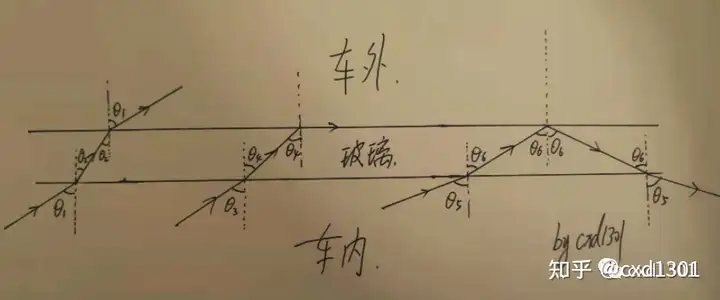 车外.
θ1
θ2 θ2
θ1
θ4 θ4
θ3
玻璃.
θ6 θ6 θ6 θ6
θ5 θ5
车内.
by cxd1301
知乎 @cxd1301